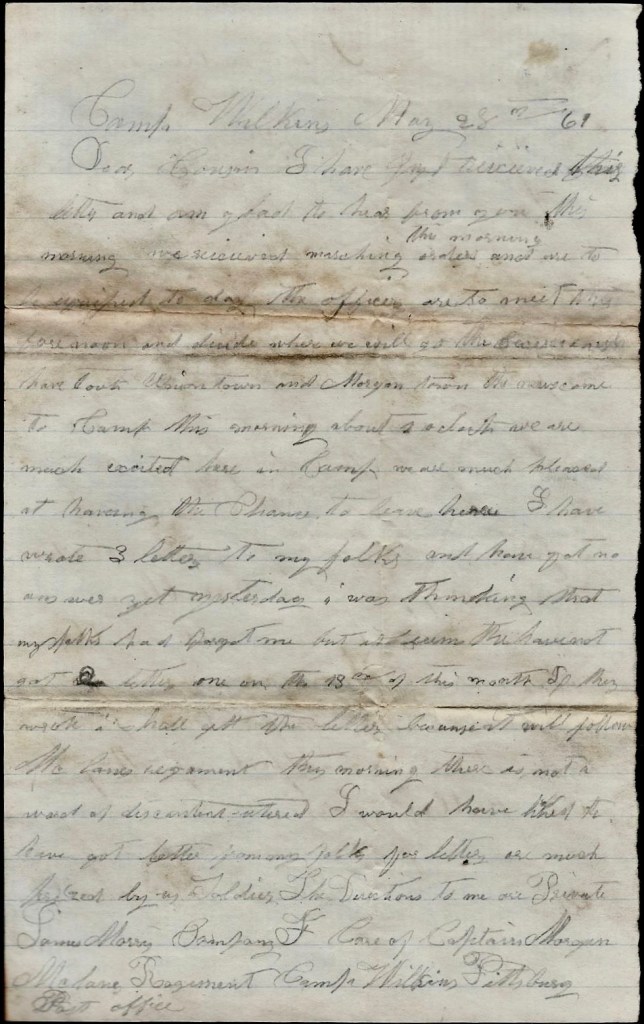 Camp Wilkins May 28 61
Dear Cousin I have just received this
letter and am glad to hear from you this
the morning
morning we recieved marching orders and are to
be equiped to day the officers are to meet this
fore noon and decide where we will go the
have took Union town and Morgan town the news come
to Camp this morning about 2 oclock we are
much excited here in Camp we are much pleased
at having the Chance to leave here I have
wrote 3 letters to my folks and have got no
answer yet yesterday i was thinking that
my folks had forgot me but the have not
got letter one on the 18 of this month If they
wrote i shall get the letter because it will follow
Mc lanes regament this morning there is not a
word of discontent utered I would have liked to
have got letter from my folks for letters are much
prized by us Soldiers The Directions to me are Private
James Morry Company F Care of Captain Morgan
Mclane Ragiment Camp Wilkins Pittsburg
Post office